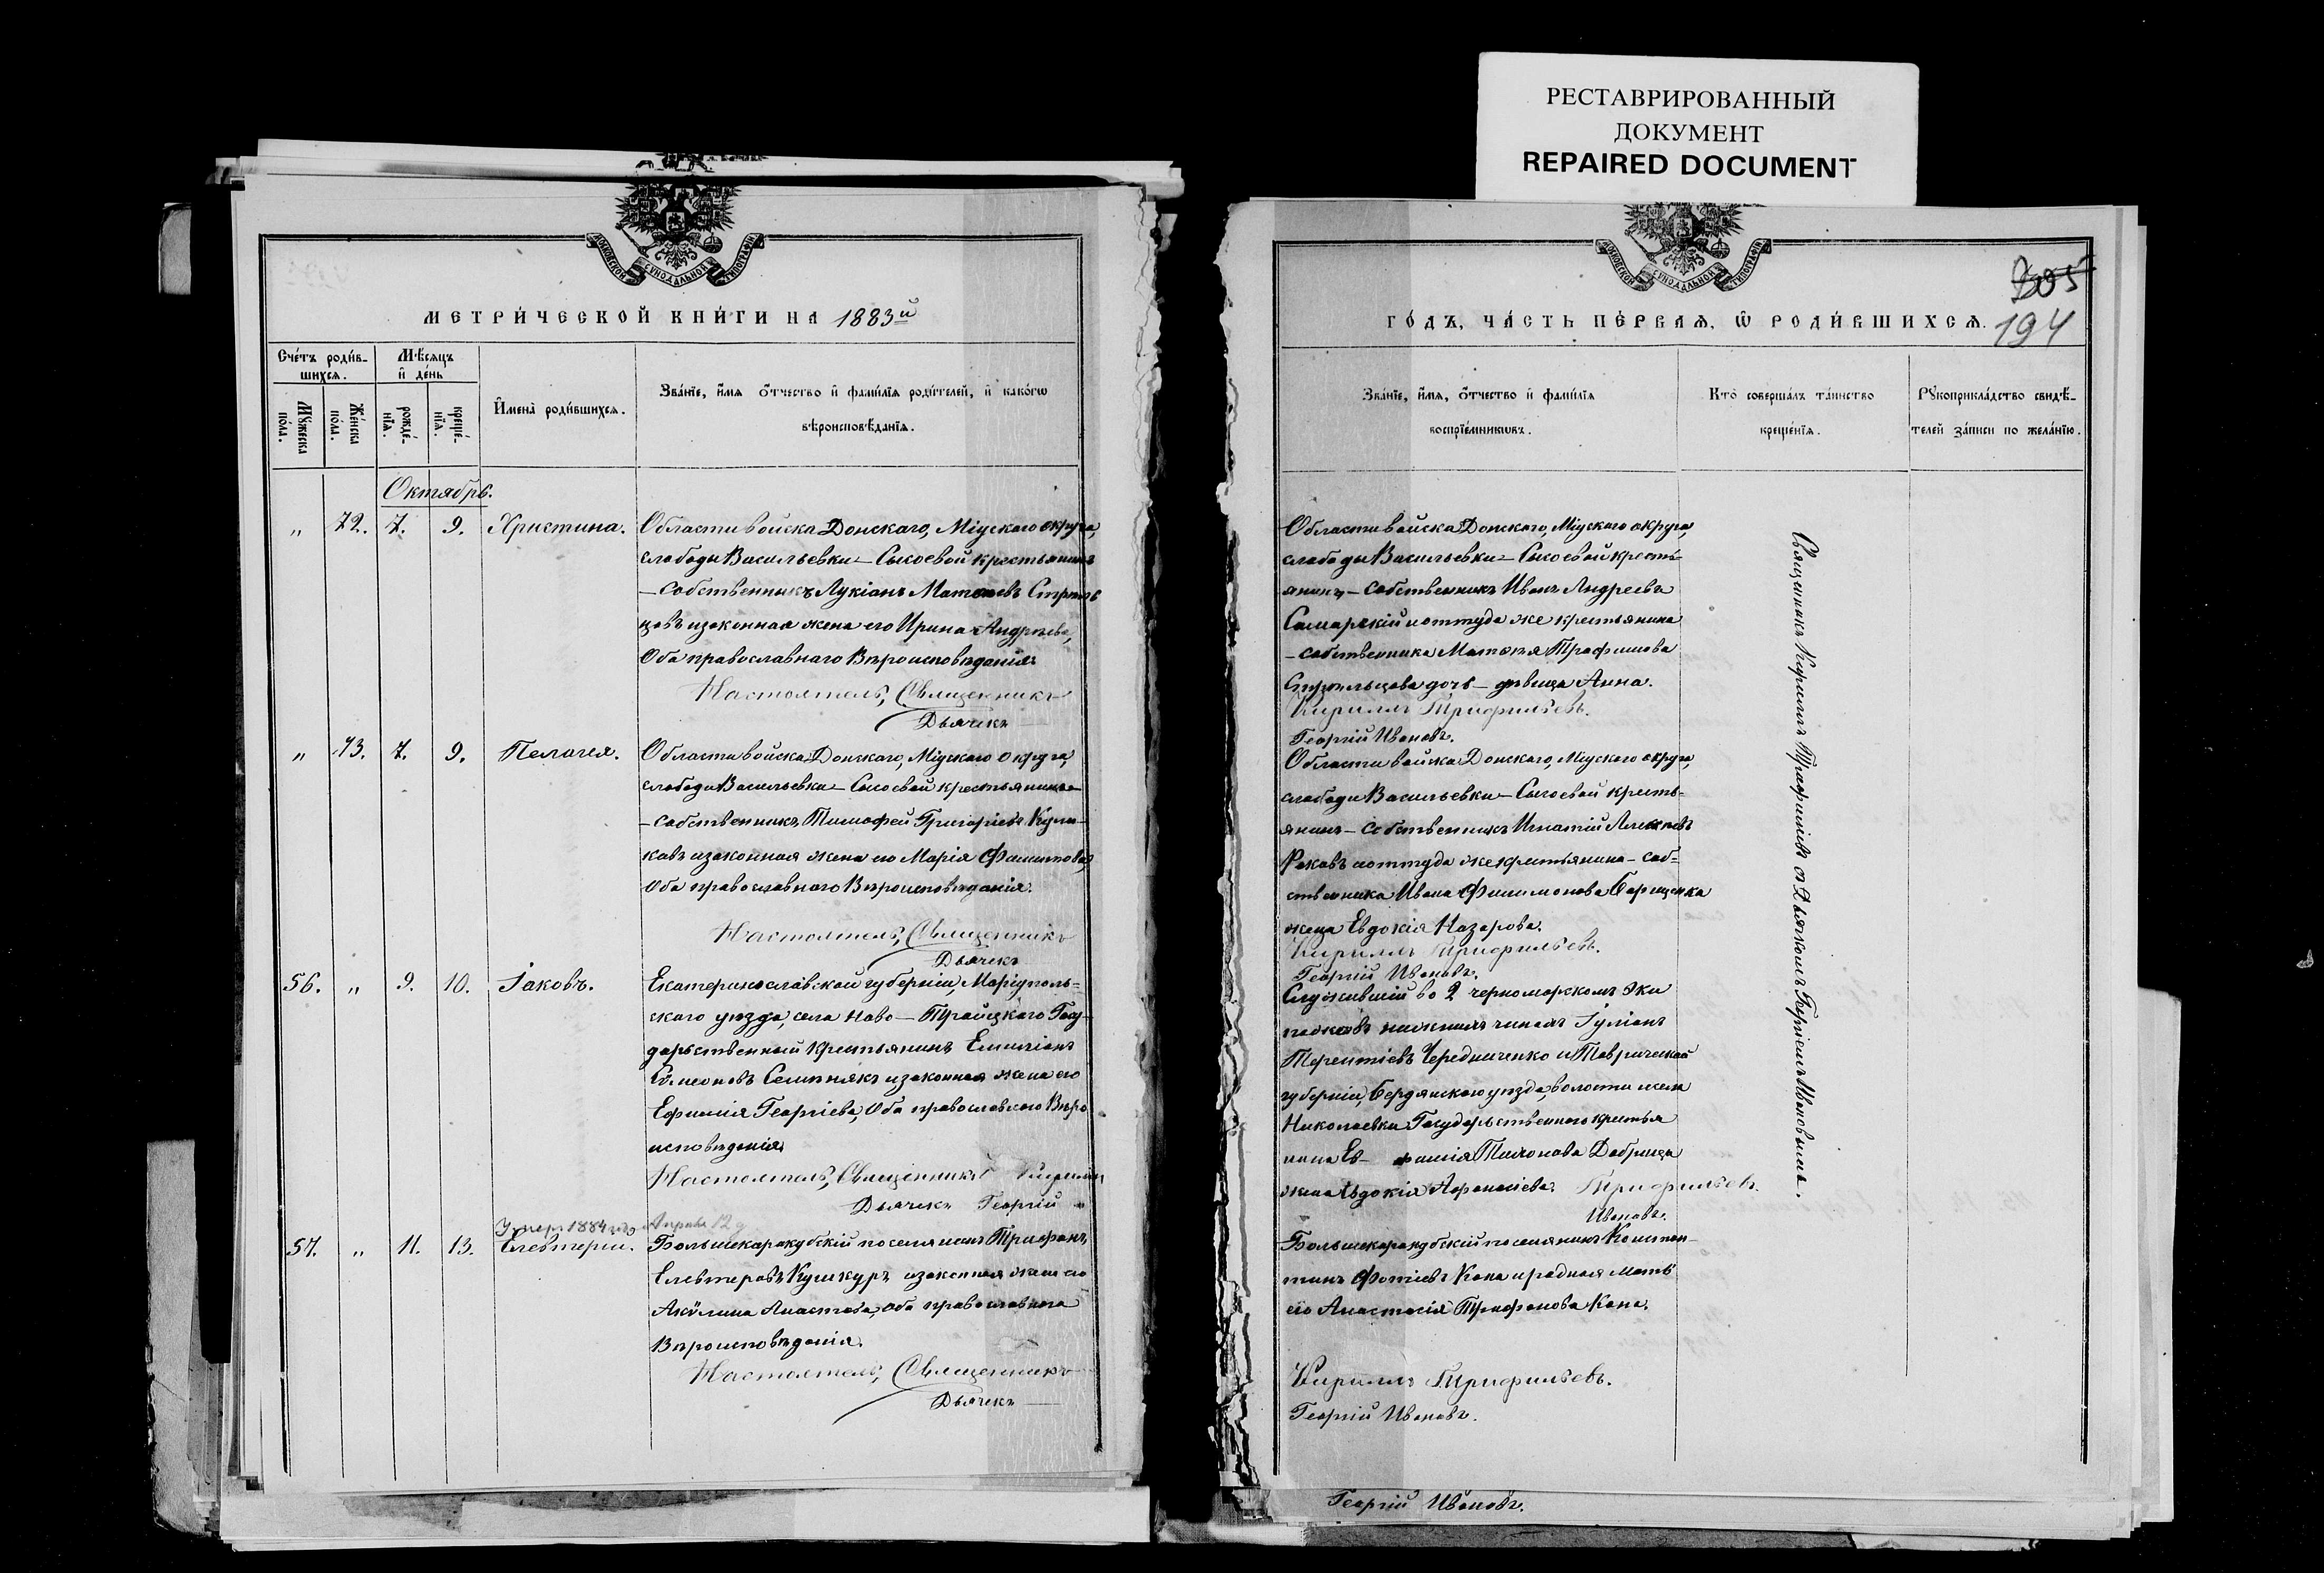 РЕСТАВРИРОВАННЫЙ
ДОКУМЕНТ
REPAIRED DOCUMENT
МОСКОВСКОЙ СѴНОДАЛЬНОЙ ТИПОГРАФІИ
МЕТРИ́ЧЕСКОЙ КНИ́ГИ НА 1883й
Сче́тъ роди́в-
шихсѧ.
Мѣ́сяцъ
и҆ де́нь
Мꙋ́жеска
по́ла.
Же́нска
по́ла.
рожде́-
нїѧ.
креще́-
нїѧ.
И҆мена̀ роди́вшихсѧ.
Зва́нїе, и҆́мѧ ѻ҆́тчество и҆ фами́лїѧ роди́телей, и҆ како́гѡ
вѣроисповѣ́данїѧ.
Октябрь.
„ 72. 7. 9. Христина.
Области войска Донскаго, Міускаго округа,
слободы Васильевки - Сысоевой крестьянинъ
- собственникъ Лукіанъ Матѳеевъ Стрѣль
цовъ и законная жена его Ирина Андрѣева,
Оба православнаго Вѣроисповѣданія.
Настоятель, Священникъ
Дьячекъ
„ 73. 7. 9. Пелагея.
Области войска Донскаго, Міускаго округа,
слободы Васильевки - Сысоевой крестьянинъ
- собственникъ Тимофей Григоріевъ Кули-
ковъ и законная жена его Марія
Оба православнаго Вѣроисповѣданія.
Настоятель, Священникъ
Дьячекъ
56. „ 9. 10. Іаковъ.
Екатеринославской губерніи, Маріуполь=
скаго уѣзда, села Ново - Троицкаго Госу-
дарственный крестьянинъ Емиліанъ
Сѵмеоновъ и законная жена его
Ефимія Георгіева, Оба православнаго Вѣро
исповѣданія
Настоятель, Священникъ Кириллъ
Дьячекъ Георгій
Умеръ 1884 года Апрѣля 12 д
57. „ 11. 13. Елевтерій.
Большекаракубскій поселянинъ Трифонъ
Елевтеровъ Кушкуръ и законная жена его
Акѵлина Анастова, оба православнаго
Вѣроисповѣданія.
Настоятель, Священникъ
Дьячекъ
305
194
МОСКОВСКОЙ СѴНОДАЛЬНОЙ ТИПОГРАФІИ
ГО́ДЪ, ЧА́СТЬ ПЕ́РВАѦ, Ѽ РОДИ́ВШИХСѦ.
Зва́нїе, и҆́мѧ, ѻ҆́тчество и҆ фами́лїѧ
воспрїе́мникѡвъ.
Кто̀ соверша́лъ та́инство
креще́нїѧ.
Рꙋкоприкла́дство свидѣ́-
телей за́писи по жела́нїю.
Области войска Донскаго, Міускаго округа,
слободы Васильевки - Сысоевой кресть-
янинъ - собственникъ Иванъ Андреевъ
Самарскій и оттуда же крестьянина
- собственника Матѳея Трофимова
Стрѣльцова дочь - дѣвица Анна.
Кириллъ Трифильевъ.
Георгій Ивановъ.
Области войска Донскаго, Міускаго округа,
слободы Васильевки - Сысоевой кресть-
янинъ - собственникъ Игнатій Алексѣевъ
Раковъ и оттуда же крестьянина - соб=
ственника Ивана Филимонова
жена Евдокія Назарова.
Кириллъ Трифильевъ.
Георгій Ивановъ.
Служившій во 2 черноморскомъ Эки
пажѣ Іуліанъ
Терентіевъ Чередниченко и Таврической
губерніи, Бердянскаго уѣзда, волости села
Николаевки Государственнаго крестья
нина
жена Евдокія Афанасіева. Трифильевъ.
Ивановъ.
Большекаракубскій поселянинъ Констан-
тинъ Фотіевъ Кона и родная мать
его Анастасія Трифонова Кона.
Кириллъ Трифильевъ.
Георгій Ивановъ.
Священникъ Кириллъ Трифильевъ съ Дьячкомъ Георгіемъ Ивановымъ.
Георгій Ивановъ.